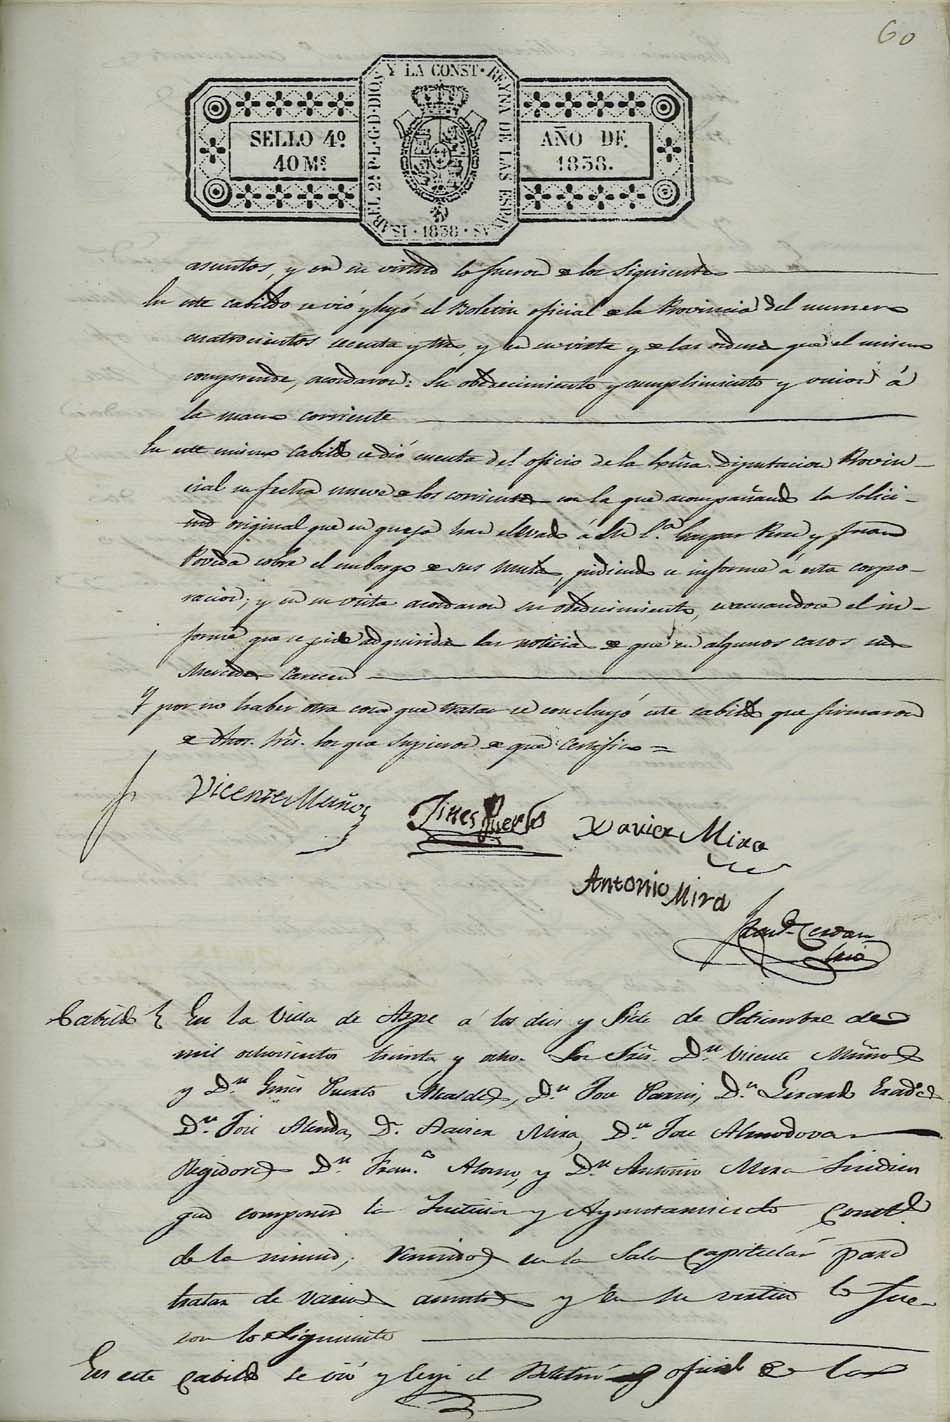 60
SELLO 4º
40 Ms
ISABEL 2ª P. L. G. D. DIOS Y LA CONST. REYNA DE LAS ESPAÑAS
· 1838 ·
AÑO DE
1838.
asuntos, y en su virtud lo fueron de los siguientes
En este cabildo se vió y leyó el Boletin oficial de la Provincia del numero
cuatrocientos y tres, y en su vista y de las ordenes que el mismo
comprende, acordaron: Su obedecimiento y cumplimiento y union á
la mano corriente
En este mismo Cabildo se dió cuenta del oficio de la Exma. Diputacion Provin-
cial su fecha nueve de los corrientes con la que acompañando la solici-
tud original que en queja han elevado á S. E.ª Gaspar Perez y Juan
Poveda sobre el embargo de sus pidiendo se informe á esta corpo-
racion; y en su vista acordaron su obedecimiento, evacuandose el in-
forme que se pide adquiridas las noticias de que en algunos casos sus
Mercedes carecen
Y por no haber otra cosa que tratar se concluyó este cabildo que firmaron
de dhos. Sres. los que supieron de que certifico =
Vicente Muñoz
Gines Puerto
Xavier Mira
Antonio Mira
Cabildo En la Villa de Aspe á los dies y Siete de Setiembre de
mil ochocientos treinta y ocho. Los Sres. Dn. Vicente Muñoz
y Dn. Gines Puerto Alcaldes, Dn. Jose Dn. Gerardo
Dn. José Dn. Xavier Mira, Dn. Jose Almodovar
Regidores Dn. Franco. Alonso, y Dn. Antonio Mira Sindico
que componen la Justicia y Ayuntamiento Constl.
de la misma; reunidos en la Sala capitular para
tratar de varios asuntos y en su virtud lo fue-
ron lo siguiente
En este cabildo se vió y leyó el Boletin oficial de los